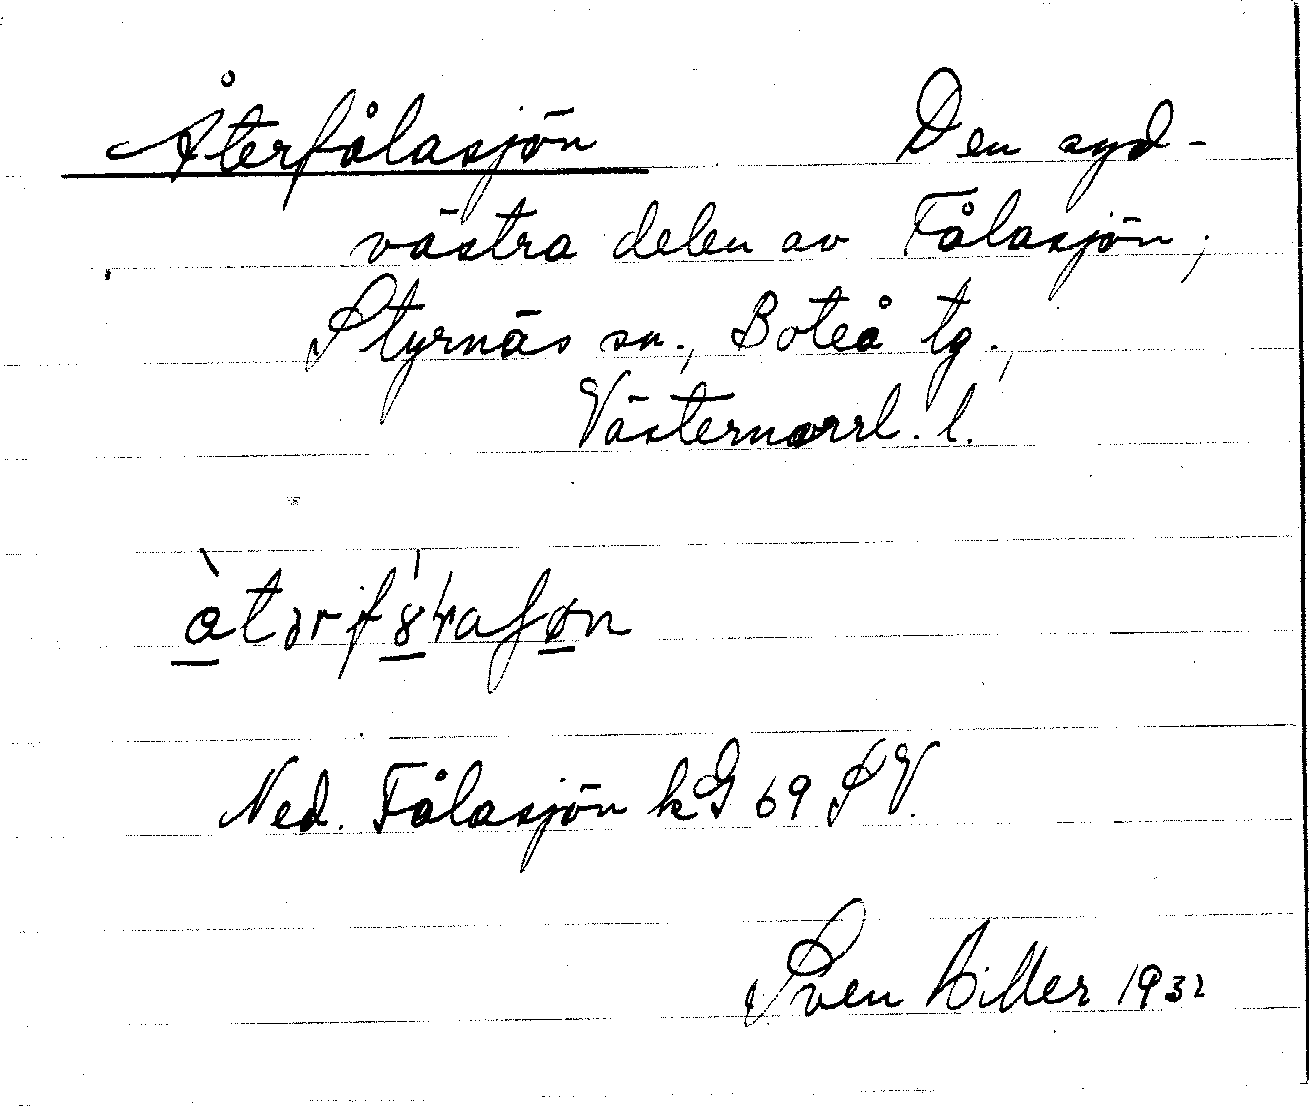 Återfålasjön Den syd-
västra delen av Fålasjön,
Styrnäs sn., Boteå tg.,
Västernorrl. l.
Ned. Fålasjön kG 69 SV.
Sven Hiller 1932